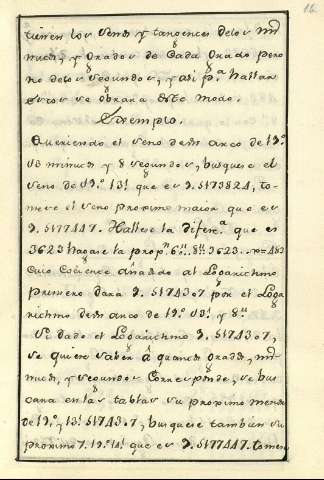 16.
tienen los senos y tangentes de los mi-
nutos, y Grados de Cada Grado pero
no de los segundos, y asi p.ª hallar
estos se obrara de este modo.
Exemplo.
Queriendo el seno de un arco de 19.º
13 minutos y 8 segundos, busquese el
seno de 19.º 13.' que es 9.5173824, to-
mese el seno proximo maior que es
9.5177447. Hallese la difer.ª que es
3623 hagase la prop.n 60.'' 8.'' 3623. x=483
Cuio Cociente añadido al Logarithmo
primero dara 9.5174307 por el Loga
rithmo de un arco de 19.º 13.' y 8.''
Si dado el Logarithmo 9.5174307,
se quiere saber á quantos Grados, mi-
nutos, y segundos Corresponde, se bus
cara en las tablas su proximo menor
de 19.º y 13.' 5174307, busquese tambien su
proximo 19.º 14.' que es 9.5177447. tomese